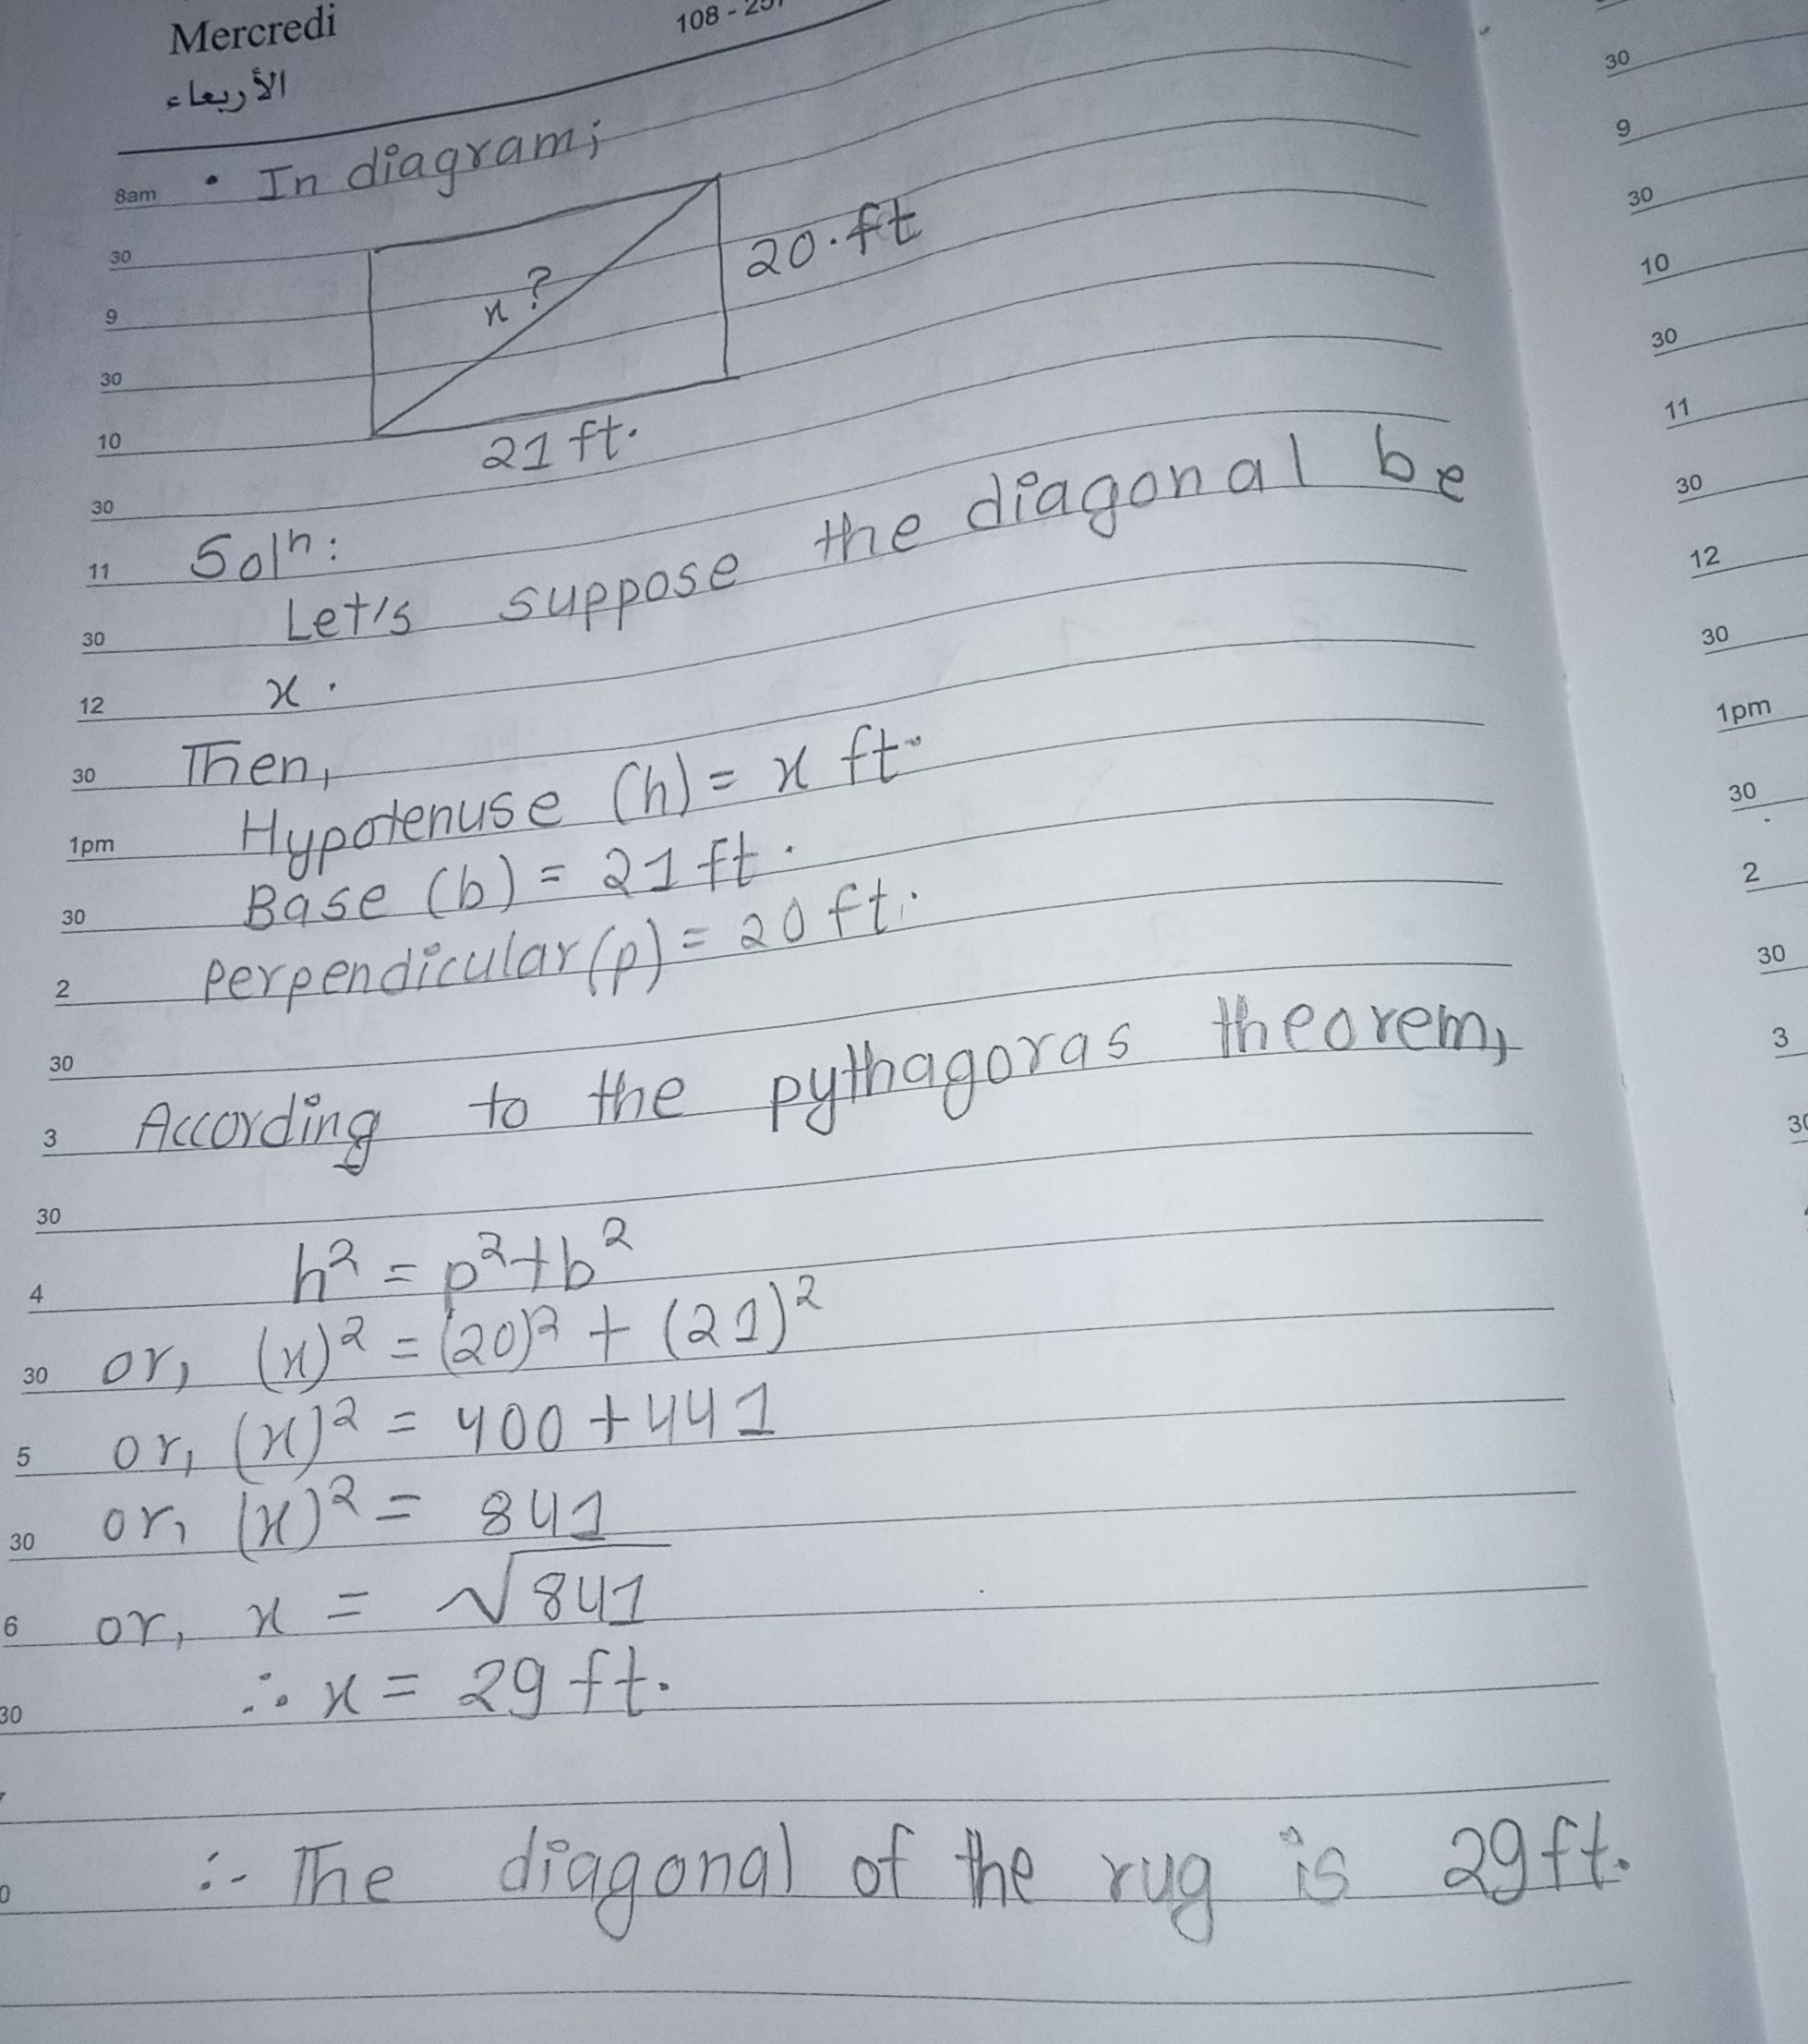 Mercredi
الأربعاء
108 - 257
8am • In diagram;
30
9
30
10
x?
20.ft
21 ft.
30
11 Solⁿ:
30 Let's suppose the diagonal be
12 x.
30 Then,
1pm Hypotenuse (h) = x ft.
30 Base (b) = 21 ft.
2 Perpendicular (p) = 20 ft.
30
3 According to the pythagoras theorem,
30
4 h² = p²+b²
30 or, (x)² = (20)² + (21)²
5 or, (x)² = 400 + 441
30 or, (x)² = 841
6 or, x = √841
30 ∴ x = 29 ft.
∴ The diagonal of the rug is 29 ft.
30
9
30
10
30
11
30
12
30
1pm
30
2
30
3
30